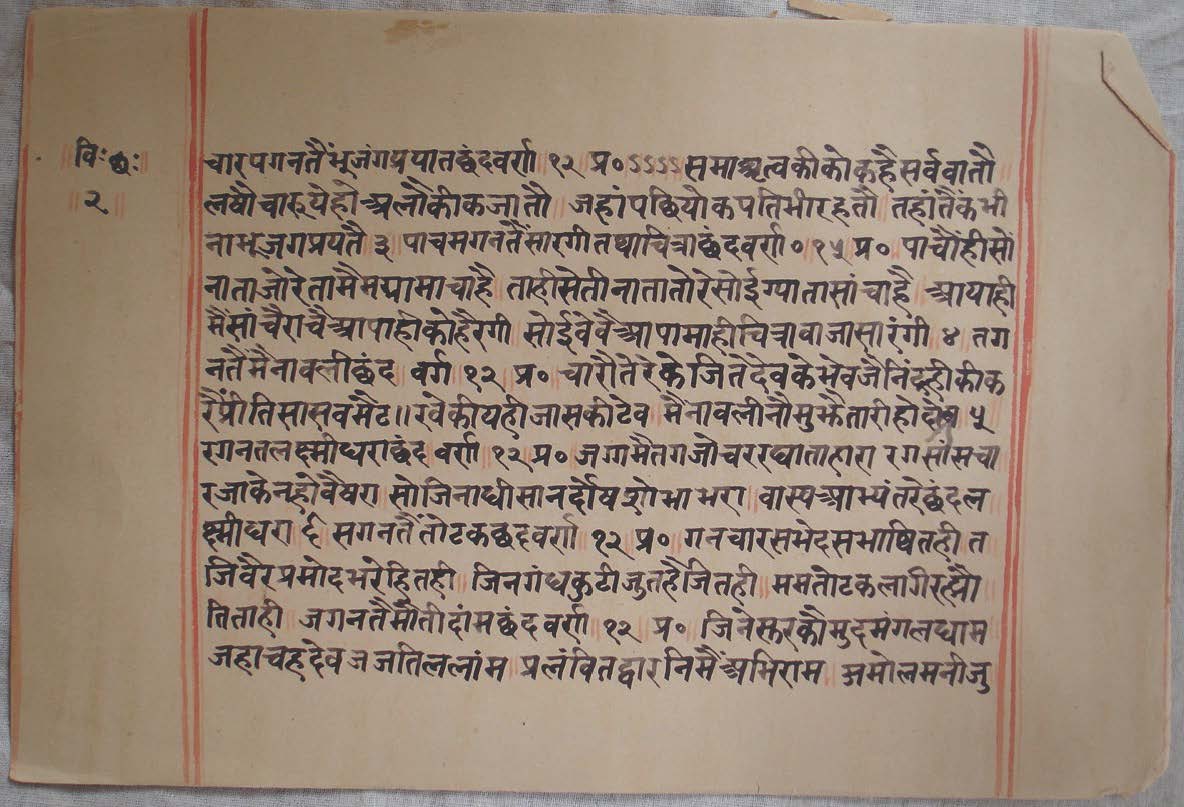 विः छः
२
चारपगनतैंभुजंगप्रपातछंदवर्ग्ग १२ प्र॰ ऽऽऽऽ समाअृत्वकीकोकहैसर्ववातौ
लषौचारुयेहौअलौकीकजातौ जहांपछियोकपतिभीरहतौ तहांतैंकभी
नाभुजगप्रयतै ३ पाचमगनतैंसारगीतथाचित्राछंदवर्ग्ग॰ १५ प्र॰ पाचौंहीसों
नाताजोरेतामैमग्रामाचाहै ताहीसेतीनातातोरेसोईग्पातासांचाहै आयाही
मैंसांचैराचैआपाहीकोहैरगी सोईवेवैआपामाहीचित्रावाजासारंगी ४ तग
नतैमैनावलीछंद वर्ग १२ प्र॰ चारौतेरेकेजितेदेवकेभेवजैनिंद्रहीकीक
रैंप्रीतिसासवमैट॥ रवेकीयहीजासकीटेव मैंनावलीनौमुझैतारीहोदेव ५
रगनतलक्ष्मीधराछंद वर्ग्ग १२ प्र॰ जगामैतगजौचररघाताहारा रगसांसचा
रजाकेनहोवैषरा सोजिनाधीसानर्दोषशोभाभरा वास्पआभ्यंतरेछंदल
क्ष्मीधरा ६ सगनतैंतोटकछदवर्ग्ग १२ प्र॰ गनचारसभेदसभाषितही त
जिवैरप्रमोदभरेहितही जिनगंधकुटीजुतहैजितही ममतोटकलागिरह्यौ
तिताही जगनतैमौतीदांमछंदवर्ग्ग १२ प्र॰ जिनेस्तरकौमुदमंगलधाम
जहाचहूदेवजजतिललांम प्रलंवितद्वारनिमैंअभिराम अमोलमनीजु